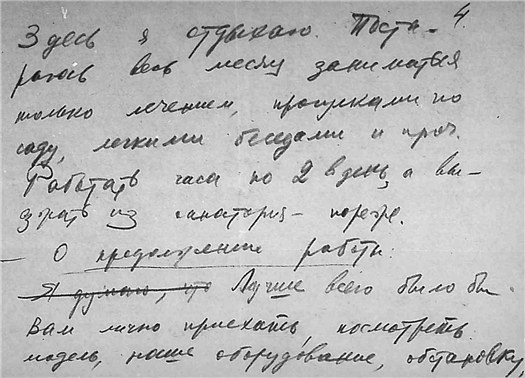 4.
Здесь я отдыхаю. Поста-
раюсь весь месяц заниматься
только лечением, прогулками по
саду, легкими беседами и проч.
Работать часа по 2 в день, а вы-
из санатория – пореже.
– О продолжение работы.
Я думаю, что Лучше всего было бы
Вам лично приехать, посмотреть
модель, наше оборудование, обстановку,